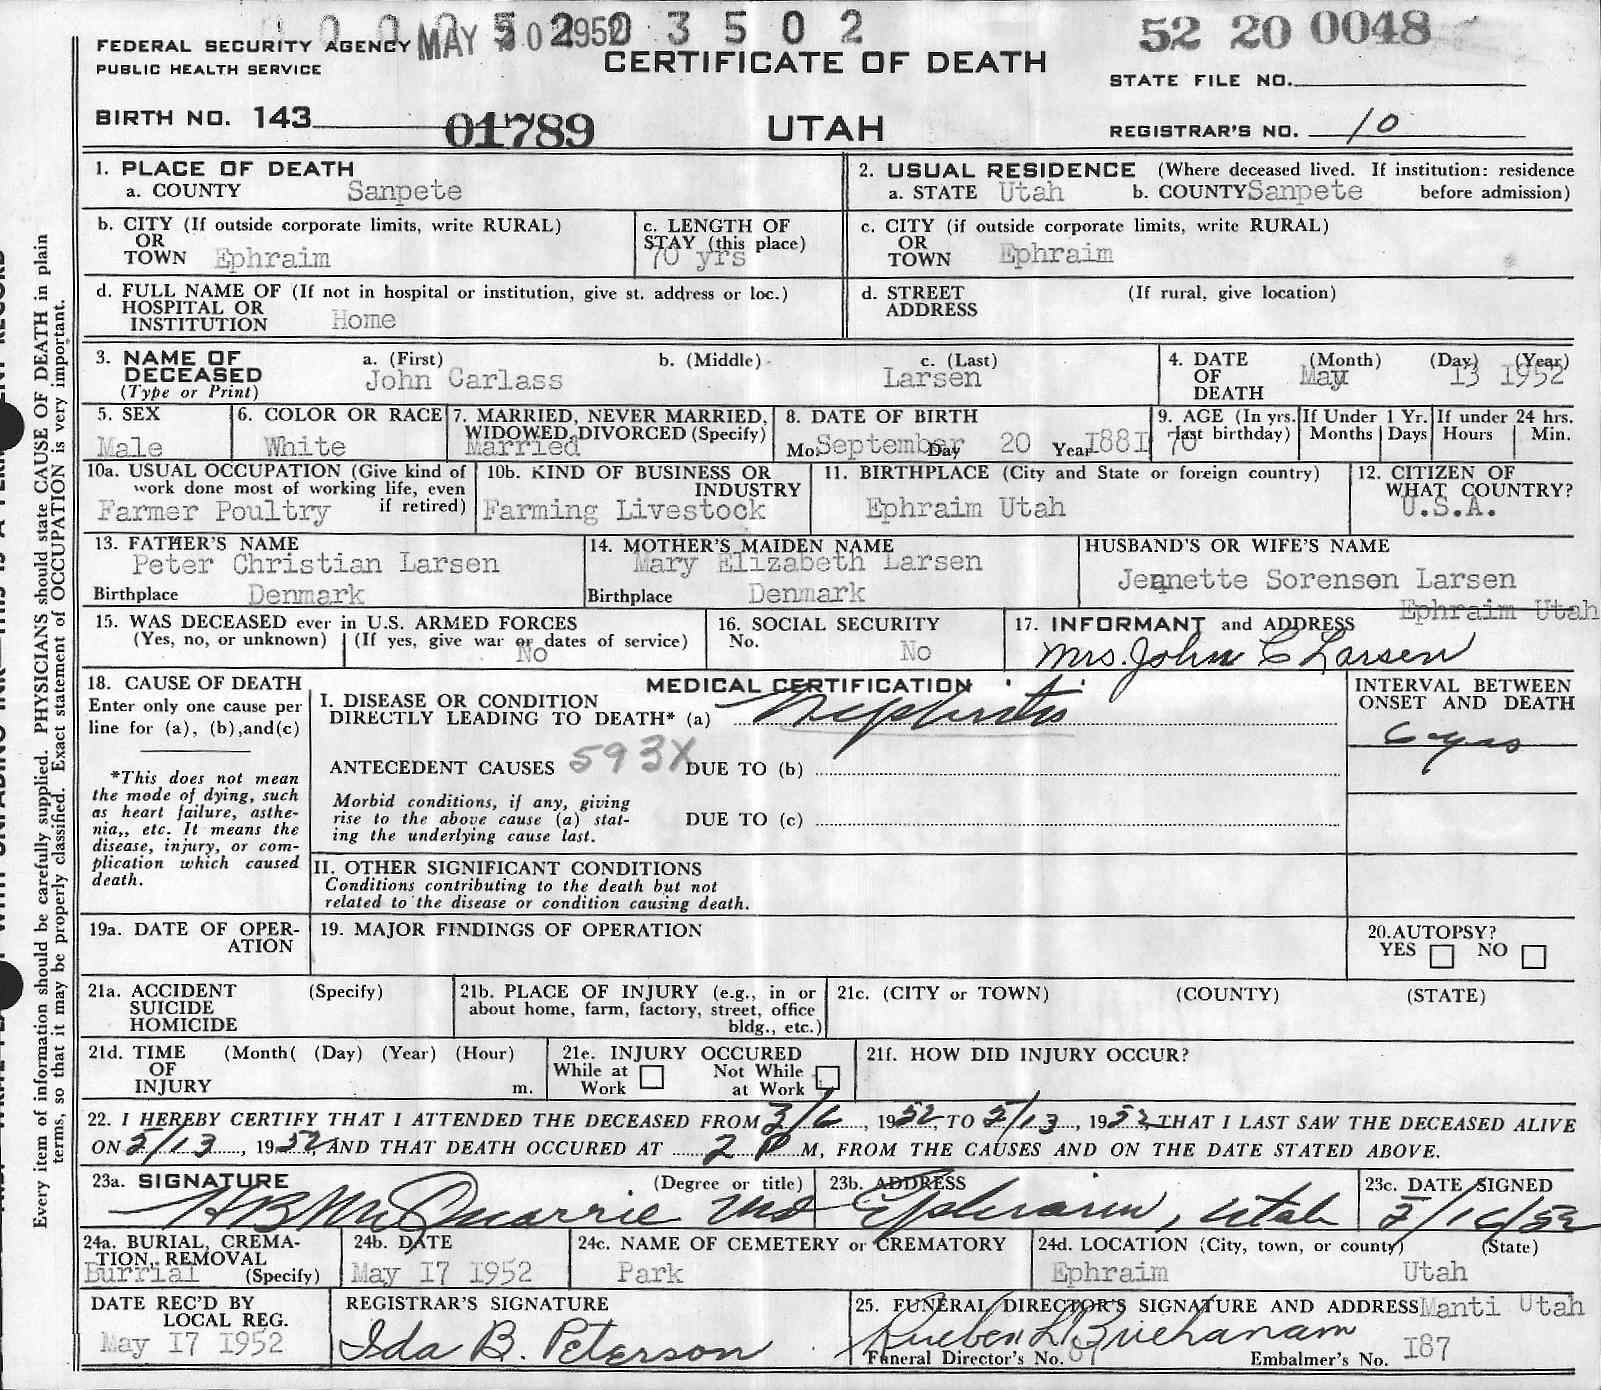 52 20 0048
MAY 20 1952
FEDERAL SECURITY AGENCY
PUBLIC HEALTH SERVICE
CERTIFICATE OF DEATH
STATE FILE NO.
BIRTH NO. 143 01789
UTAH
REGISTRAR'S NO. 10
1. PLACE OF DEATH
a. COUNTY Sanpete
2. USUAL RESIDENCE (Where deceased lived. If institution: residence
a. STATE Utah b. COUNTY Sanpete before admission)
b. CITY (If outside corporate limits, write RURAL)
OR
TOWN Ephraim
c. LENGTH OF
STAY (this place)
70 yrs
c. CITY (if outside corporate limits, write RURAL)
OR
TOWN Ephraim
d. FULL NAME OF (If not in hospital or institution, give st. address or loc.)
HOSPITAL OR
INSTITUTION Home
d. STREET (If rural, give location)
ADDRESS
3. NAME OF
DECEASED
(Type or Print)
a. (First) b. (Middle) c. (Last)
John Carlass Larsen
4. DATE (Month) (Day) (Year)
OF May 13 1952
DEATH
5. SEX
Male
6. COLOR OR RACE
White
7. MARRIED, NEVER MARRIED,
WIDOWED, DIVORCED (Specify)
Married
8. DATE OF BIRTH
Mo. September Day 20 Year 1881
9. AGE (In yrs.
last birthday)
70
If Under 1 Yr.
Months Days
If under 24 hrs.
Hours Min.
10a. USUAL OCCUPATION (Give kind of
work done most of working life, even
if retired)
Farmer Poultry
10b. KIND OF BUSINESS OR
INDUSTRY
Farming Livestock
11. BIRTHPLACE (City and State or foreign country)
Ephraim Utah
12. CITIZEN OF
WHAT COUNTRY?
U.S.A.
13. FATHER'S NAME
Peter Christian Larsen
Birthplace Denmark
14. MOTHER'S MAIDEN NAME
Mary Elizabeth Larsen
Birthplace Denmark
HUSBAND'S OR WIFE'S NAME
Jeanette Sorenson Larsen
15. WAS DECEASED ever in U.S. ARMED FORCES
(Yes, no, or unknown) (If yes, give war or dates of service)
No
16. SOCIAL SECURITY
No. No
17. INFORMANT and ADDRESS Ephraim Utah
Mrs. John C Larsen
18. CAUSE OF DEATH
Enter only one cause per
line for (a), (b),and(c)
*This does not mean
the mode of dying, such
as heart failure, asthe-
nia,, etc. It means the
disease, injury, or com-
plication which caused
death.
MEDICAL CERTIFICATION
I. DISEASE OR CONDITION
DIRECTLY LEADING TO DEATH* (a) Nephritis
INTERVAL BETWEEN
ONSET AND DEATH
6 yrs
ANTECEDENT CAUSES 593X DUE TO (b)
Morbid conditions, if any, giving
rise to the above cause (a) stat-
ing the underlying cause last.
DUE TO (c)
II. OTHER SIGNIFICANT CONDITIONS
Conditions contributing to the death but not
related to the disease or condition causing death.
19a. DATE OF OPER-
ATION
19. MAJOR FINDINGS OF OPERATION
20.AUTOPSY?
YES NO
21a. ACCIDENT (Specify)
SUICIDE
HOMICIDE
21b. PLACE OF INJURY (e.g., in or
about home, farm, factory, street, office
bldg., etc.)
21c. (CITY or TOWN) (COUNTY) (STATE)
21d. TIME (Month( (Day) (Year) (Hour)
OF
INJURY m.
21e. INJURY OCCURED
While at Work
Not While at Work
21f. HOW DID INJURY OCCUR?
22. I HEREBY CERTIFY THAT I ATTENDED THE DECEASED FROM 3/6, 1952, TO 5/13, 1952 THAT I LAST SAW THE DECEASED ALIVE
ON 5/13, 1952 AND THAT DEATH OCCURED AT 2 P M, FROM THE CAUSES AND ON THE DATE STATED ABOVE.
23a. SIGNATURE (Degree or title)
HB McQuarrie MD
23b. ADDRESS
Ephraim, Utah
23c. DATE SIGNED
5/16/52
24a. BURIAL, CREMA-
TION, REMOVAL
Burrial (Specify)
24b. DATE
May 17 1952
24c. NAME OF CEMETERY or CREMATORY
Park
24d. LOCATION (City, town, or county) (State)
Ephraim Utah
DATE REC'D BY
LOCAL REG.
May 17 1952
REGISTRAR'S SIGNATURE
Ida B. Peterson
25. FUNERAL DIRECTOR'S SIGNATURE AND ADDRESS Manti Utah
Rueben L. Buchanan
Funeral Director's No. 87 Embalmer's No. 187
Every item of information should be carefully supplied. PHYSICIANS should state CAUSE OF DEATH in plain
terms, so that it may be properly classified. Exact statement of OCCUPATION is very important.